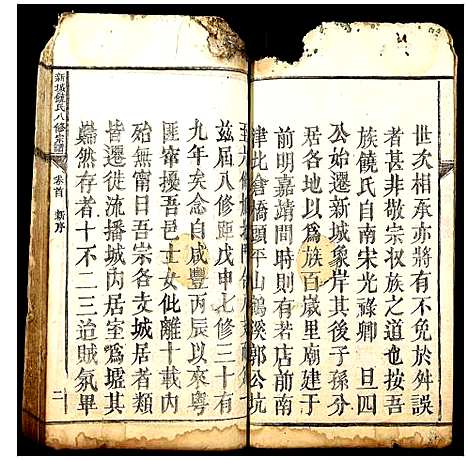 世次相承亦將有不免於舛誤
者甚非敬宗收族之道也按吾
族饒氏自南宋光祿卿 旦四
公始遷新城象岸其後子孫分
居各地以爲族百歲里廟建于
前明嘉靖間時則有若店前南
津比倉橋頭平山鶴溪郭公坑
茲屆八修距戊申七修三十有
九年矣念自咸豐丙辰以來粵
匪竄擾吾邑士女仳離十載內
殆無甯日吾宗各支城居者類
皆遷徙流播城內居室爲墟其
巋然存者十不二三迨賊氛畢
新城饒氏八修宗譜
卷首 新序
二